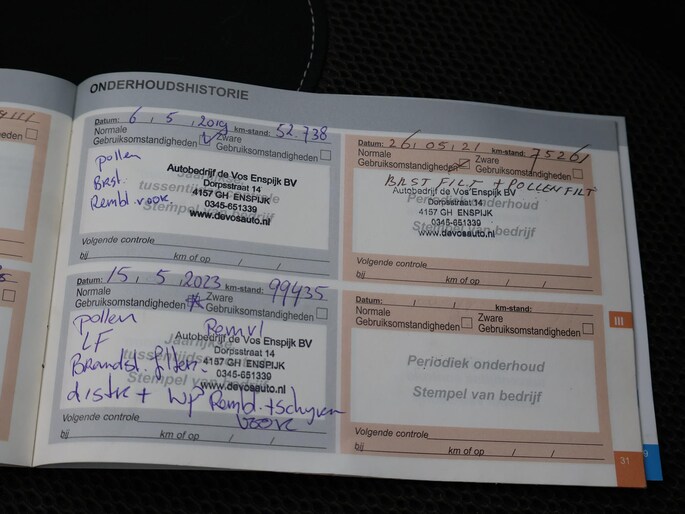 ONDERHOUDSHISTORIE
Datum: 6, 5, 2019 km-stand: 52.738
Normale Zware
Gebruiksomstandigheden Gebruiksomstandigheden
pollen
Brst.
Rembl. voor.
Autobedrijf de Vos Enspijk BV
Dorpsstraat 14
4157 GH ENSPIJK
0345-651339
www.devosauto.nl
Stempel van bedrijf
Volgende controle
bij km of op / /
Datum: 15, 5, 2023 km-stand: 99435
Normale Zware
Gebruiksomstandigheden Gebruiksomstandigheden
pollen Remvl
LF
Brandst. filter.
distr + wp Rembl. + schijven
voor
Autobedrijf de Vos Enspijk BV
Dorpsstraat 14
4157 GH ENSPIJK
0345-651339
www.devosauto.nl
Stempel van bedrijf
Volgende controle
bij km of op / /
Datum: 26, 05, 21 km-stand: 75261
Normale Zware
Gebruiksomstandigheden Gebruiksomstandigheden
BRST FILT + POLLENFILT
Autobedrijf de Vos Enspijk BV
Dorpsstraat 14
4157 GH ENSPIJK
0345-651339
www.devosauto.nl
Periodiek onderhoud
Stempel van bedrijf
Volgende controle
bij km of op / /
Datum: / / km-stand:
Normale Zware
Gebruiksomstandigheden Gebruiksomstandigheden
Periodiek onderhoud
Stempel van bedrijf
Volgende controle
bij km of op / /
III
31
9